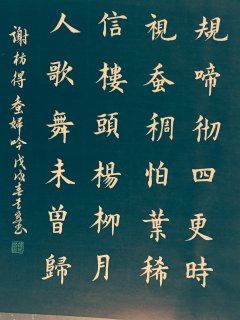 規啼彻四更時
視蚕稠怕葉稀
信樓頭楊柳月
人歌舞未曾歸
謝枋得蚕婦吟戊戌春